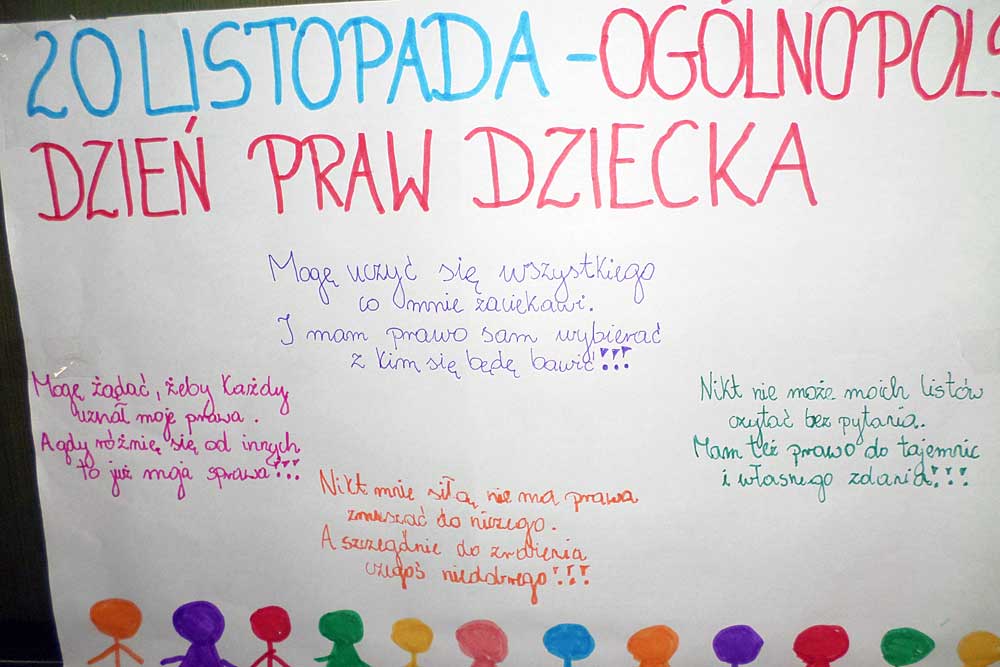 20 LISTOPADA - OGÓLNOPOLS
DZIEŃ PRAW DZIECKA
Mogę uczyć się wszystkiego
co mnie zaciekawi.
I mam prawo sam wybierać
z kim się będę bawić!!!
Mogę żądać, żeby każdy
uznał moje prawa.
A gdy różnię się od innych
to już moja sprawa!!!
Nikt nie może moich listów
czytać bez pytania.
Mam też prawo do tajemnic
i własnego zdania!!!
Nikt mnie siłą nie ma prawa
zmuszać do niczego.
A szczególnie do zrobienia
czegoś niedobrego!!!